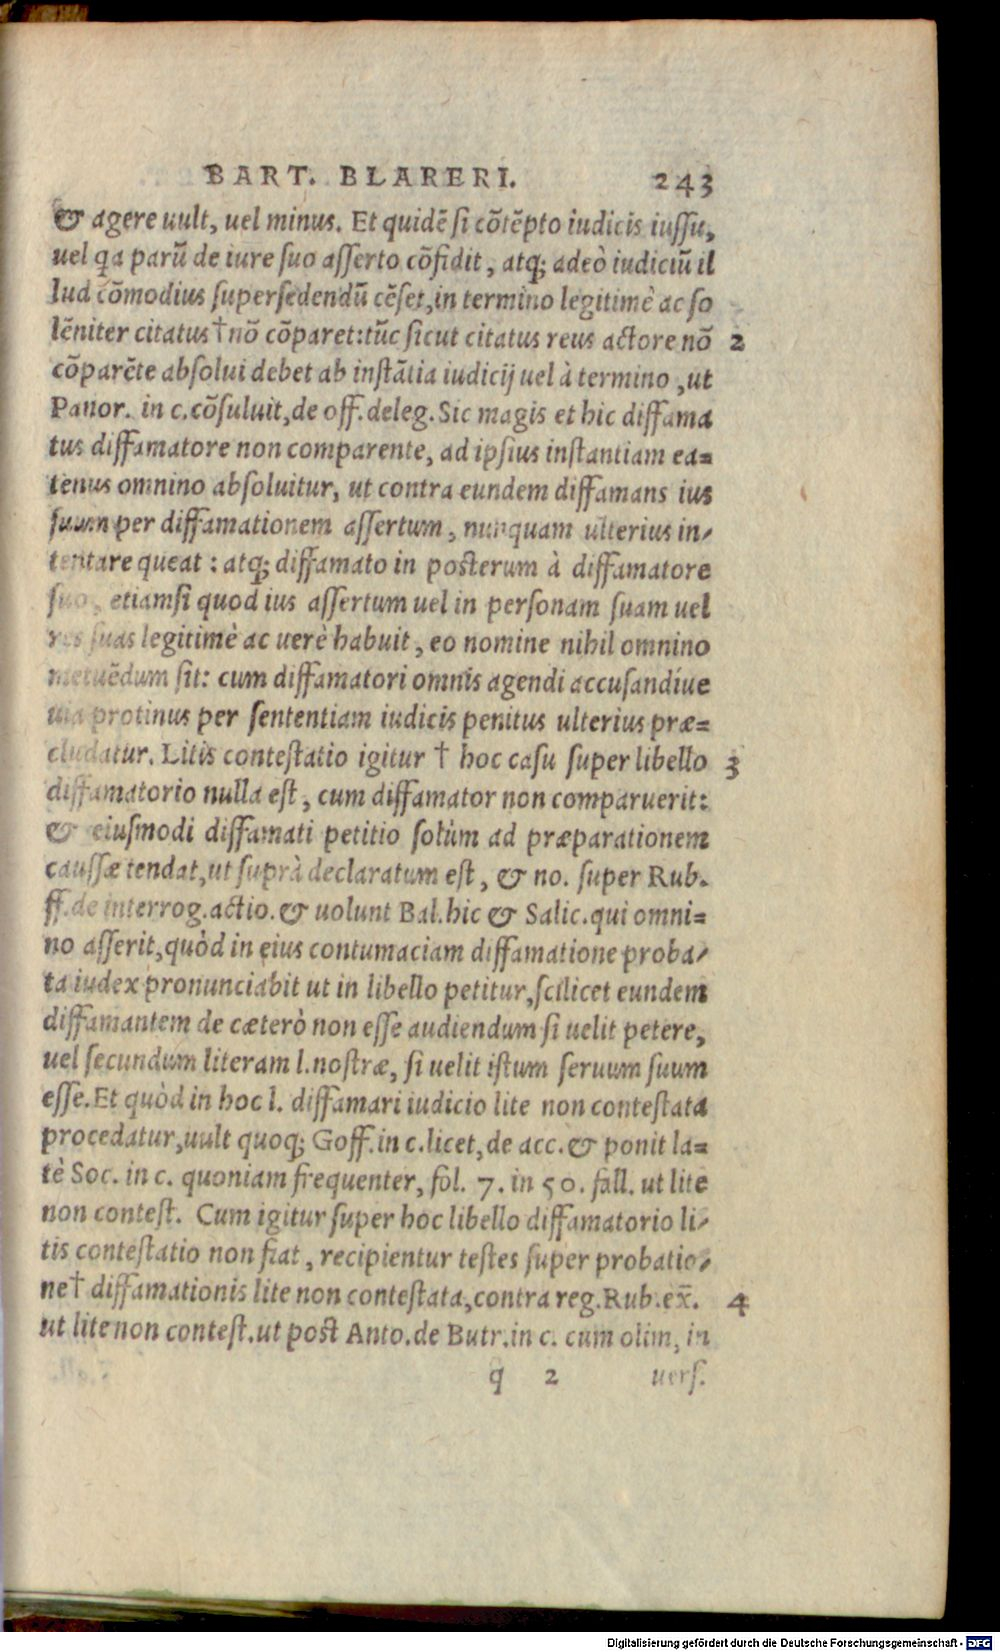 BART. BLARERI. 243
& agere uult, uel minus. Et quidē si cōtēpto iudicis iussu,
uel qa parū de iure suo asserto cōfidit, atq; adeò iudiciū il
lud cōmodius supersedendū cēset, in termino legitimè ac so
lēniter citatus † nō cōparet: tūc sicut citatus reus actore nō 2
cōparēte absolui debet ab instātia iudicij uel à termino, ut
Panor. in c. cōsuluit, de off. deleg. Sic magis et hic diffama
tus diffamatore non comparente, ad ipsius instantiam ea=
tenus omnino absoluitur, ut contra eundem diffamans ius
suum per diffamationem assertum, nunquam ulterius in-
tentare queat: atq; diffamato in posterum à diffamatore
suo, etiamsi quod ius assertum uel in personam suam uel
res suas legitimè ac uerè habuit, eo nomine nihil omnino
metuēdum sit: cum diffamatori omnis agendi accusandiue
uia protinus per sententiam iudicis penitus ulterius præ=
cludatur. Litis contestatio igitur † hoc casu super libello 3
diffamatorio nulla est, cum diffamator non comparuerit:
& eiusmodi diffamati petitio solùm ad præparationem
caussæ tendat, ut suprà declaratum est, & no. super Rub.
ff. de interrog. actio. & uolunt Bal. hic & Salic. qui omni=
no asserit, quòd in eius contumaciam diffamatione proba-
ta iudex pronunciabit ut in libello petitur, scilicet eundem
diffamantem de cæterò non esse audiendum si uelit petere,
uel secundum literam l. nostræ, si uelit istum seruum suum
esse. Et quòd in hoc l. diffamari iudicio lite non contestata
procedatur, uult quoq; Goff. in c. licet, de acc. & ponit la=
tè Soc. in c. quoniam frequenter, fol. 7. in 50. fall. ut lite
non contest. Cum igitur super hoc libello diffamatorio li-
tis contestatio non fiat, recipientur testes super probatio-
ne † diffamationis lite non contestata, contra reg. Rub. ex̄. 4
ut lite non contest. ut post Anto. de Butr. in c. cum olim, in
q 2 uers.
Digitalisierung gefördert durch die Deutsche Forschungsgemeinschaft - DFG